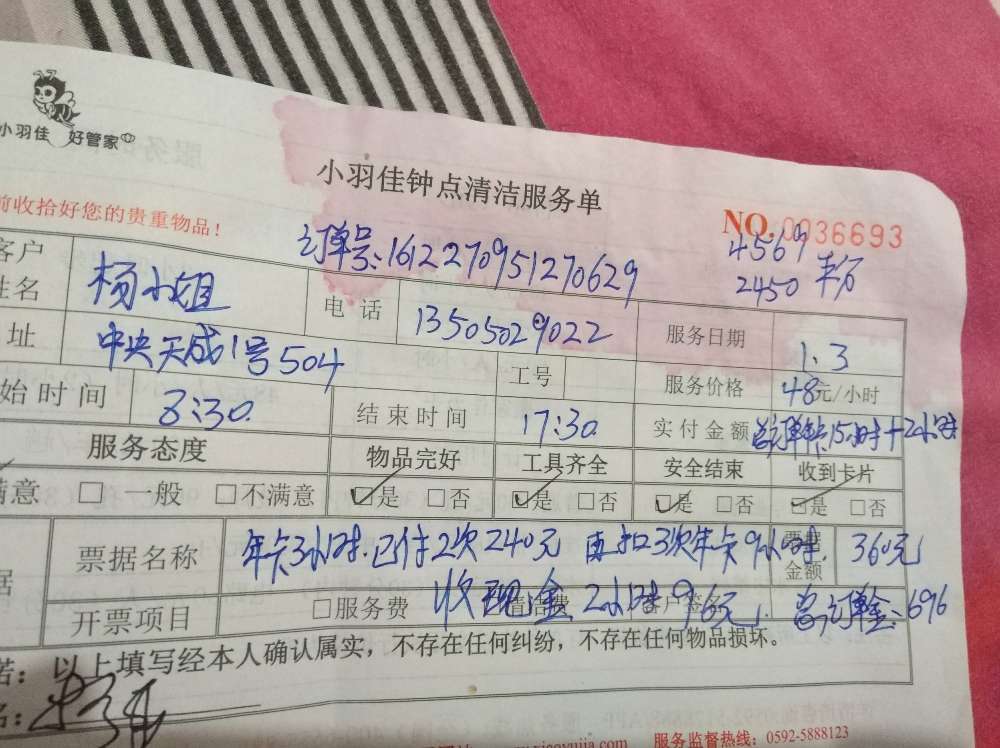 小羽佳 好管家
小羽佳钟点清洁服务单
前收拾好您的贵重物品!
NO.0036693
订单号:1612270951270629
4569
2450
客户
姓名 杨小姐 电话 13505029022 服务日期 1.3
址 中央天成1号504 工号 服务价格 48元/小时
始时间 8:30 结束时间 17:30 实付金额 总订单年卡15小时+2小时
服务态度 物品完好 工具齐全 安全结束 收到卡片
满意 □ 一般 □不满意 □是 □否 □是 □否 □是 □否 □是 □否
据 票据名称 年卡3小时.已付2次240元 再扣3次年卡9小时. 票据金额 360元
开票项目 □服务费 收现金 2小时96元, 总订单金:696
诺:以上填写经本人确认属实,不存在任何纠纷,不存在任何物品损坏。
名:
服务监督热线:0592-5888123